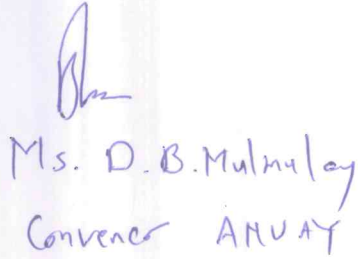 Ms. D. B. Mulmuley
Convenor ANVAY